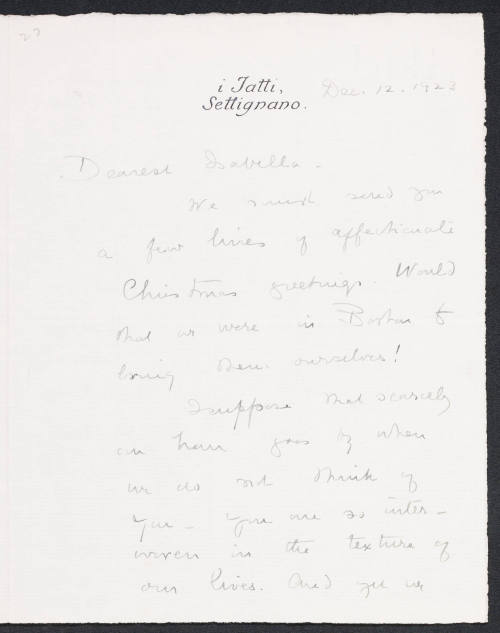 27
i Tatti,
Settignano.
Dec. 12. 1923
Dearest Isabella -
We must send you
a few lines of affectionate
Christmas greetings. Would
that we were in Boston to
bring them ourselves!
I suppose that scarcely
an hour goes by when
we do not think of
you - you are so inter-
woven in the texture of
our lives. And yet we